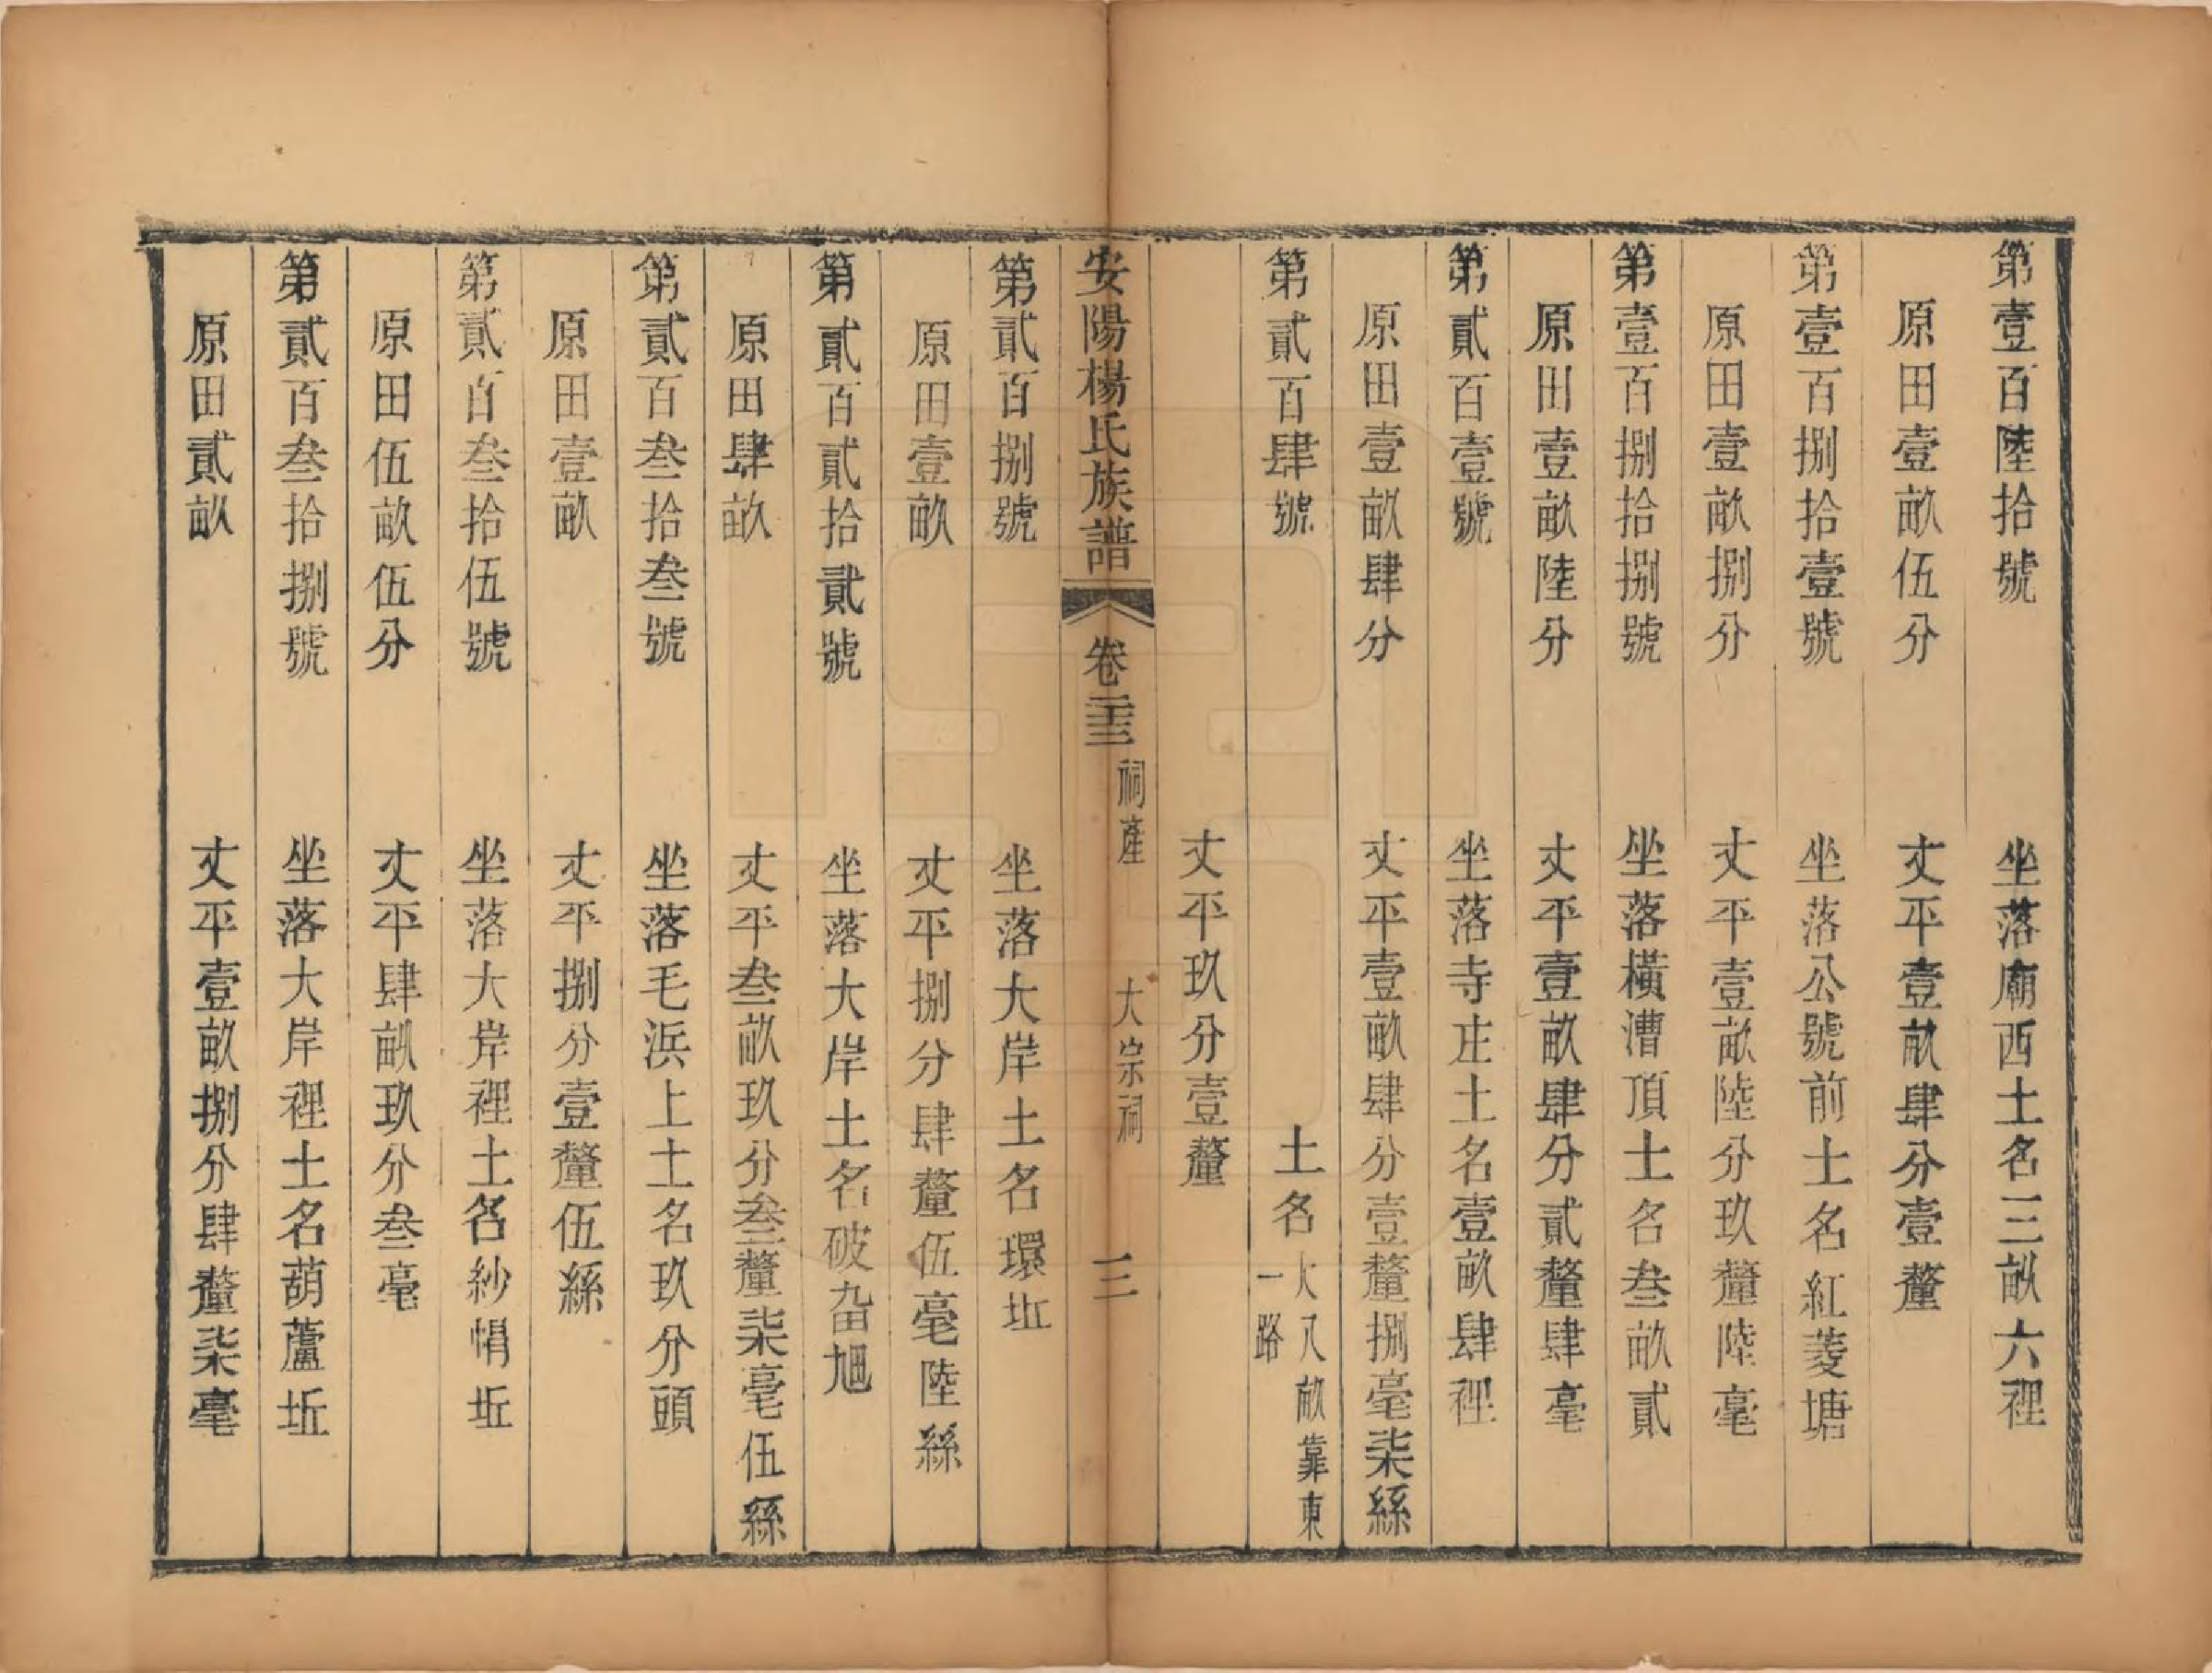 第壹百陸拾號　坐落廟西土名三畝六裡
原田壹畝伍分　丈平壹畝肆分壹釐
第壹百捌拾壹號　坐落公號前土名紅菱塘
原田壹畝捌分　丈平壹畝陸分玖釐陸毫
第壹百捌拾捌號　坐落橫漕頂土名叁畝貳
原田壹畝陸分　丈平壹畝肆分貳釐肆毫
第貳百壹號　坐落寺庄土名壹畝肆裡
原田壹畝肆分　丈平壹畝肆分壹釐捌毫柒絲
第貳百肆號　土名大尺畝靠東一路
丈平玖分壹釐
安陽楊氏族譜　卷二十三　祠產　大宗祠　三
第貳百捌號　坐落大岸土名環坵
原田壹畝　丈平捌分肆釐伍毫陸絲
第貳百貳拾貳號　坐落大岸土名破畓
原田肆畝　丈平叁畝玖分叁釐柒毫伍絲
第貳百叁拾叁號　坐落毛浜上土名玖分頭
原田壹畝　丈平捌分壹釐伍絲
第貳百叁拾伍號　坐落大岸裡土名紗帽坵
原田伍畝伍分　丈平肆畝玖分叁毫
第貳百叁拾捌號　坐落大岸裡土名葫蘆坵
原田貳畝　丈平壹畝捌分肆釐柒毫